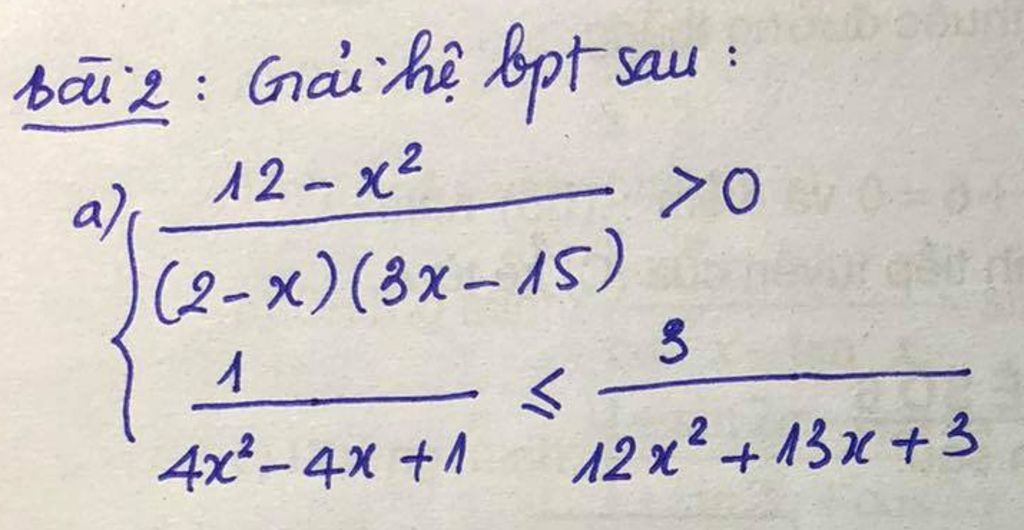 Bài 2 : Giải hệ bpt sau :
a) { 12 - x²
(2 - x)(3x - 15) > 0
1 ≤ 3
4x² - 4x + 1 12x² + 13x + 3